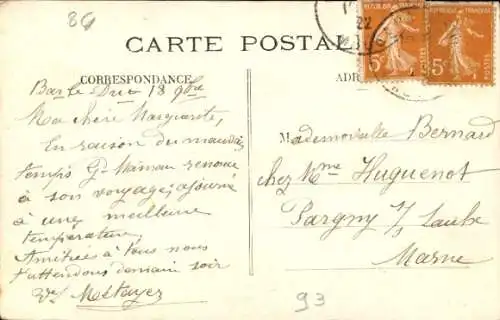 86
CARTE POSTALE
CORRESPONDANCE
ADR
Bar le Duc 18 9bre
Ma chère Marguerite,
En raison du mauvais
temps Gd Maman renonce
à son voyage, ajourné
à une meilleure
température.
Amitiés à tous nous
t'attendons demain soir
Vve Métayer
Mademoiselle Bernard
chez Mme Huguenot
Pargny s/ Saulx
Marne
93
22
5c
POSTES
5c
POSTES